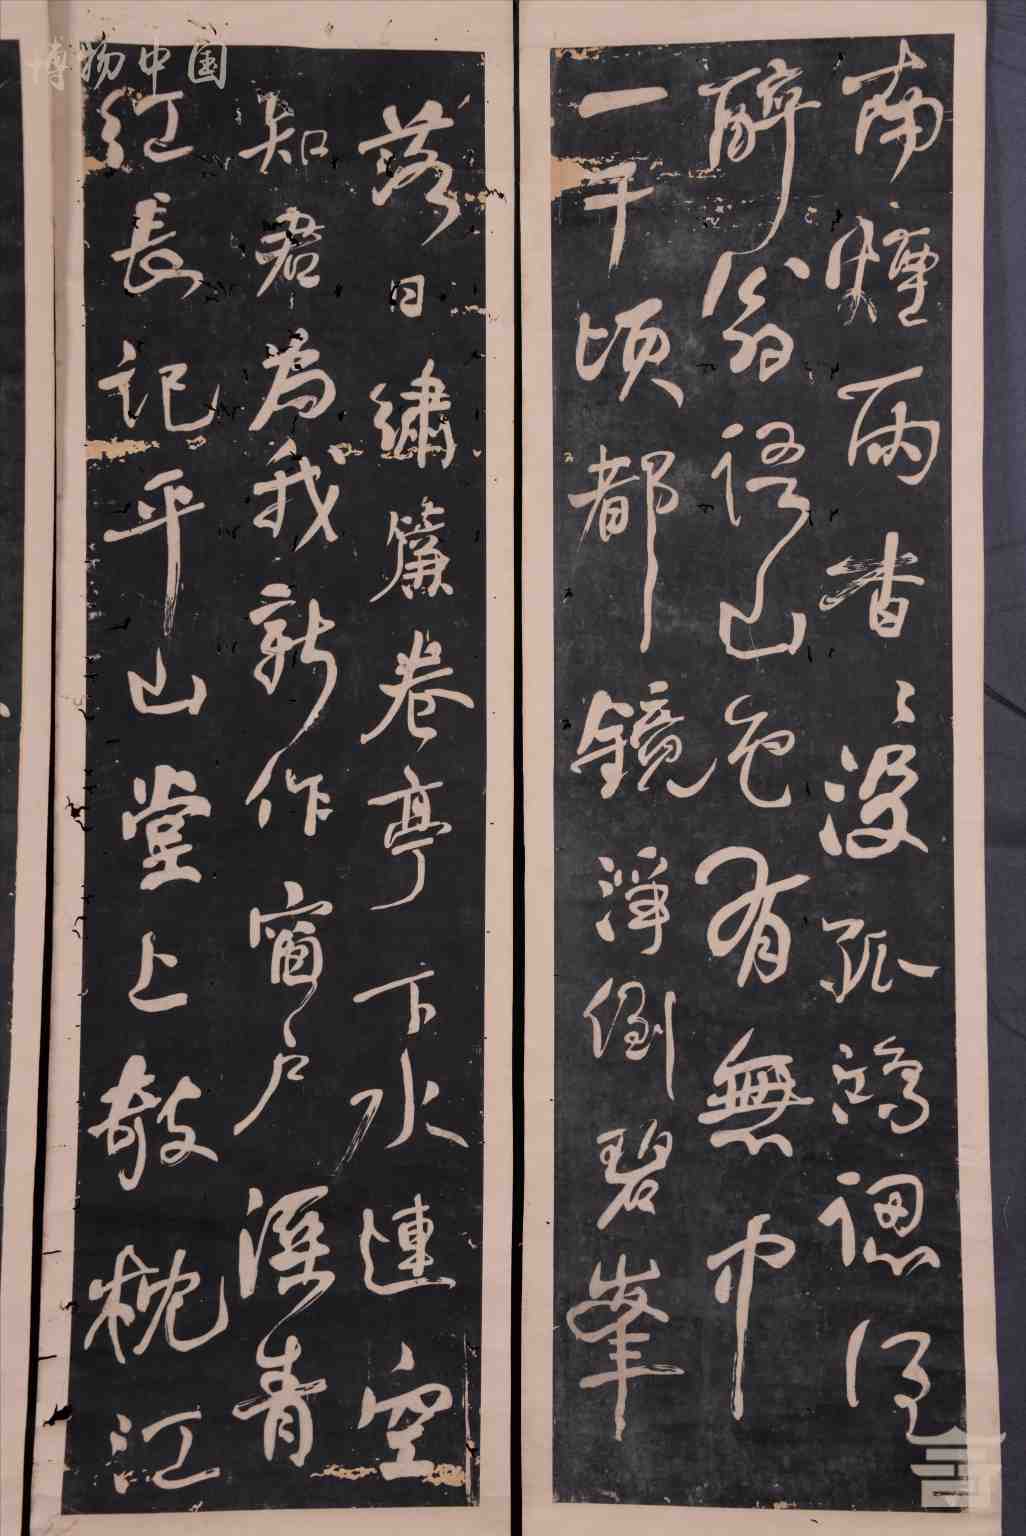 落日繡簾卷亭下水連空
知君為我新作窗戶濕青
紅長記平山堂上攲枕江
南煙雨杳〻沒孤鴻認得
醉翁語山色有無中
一千頃都鏡淨倒碧峯
博物中国